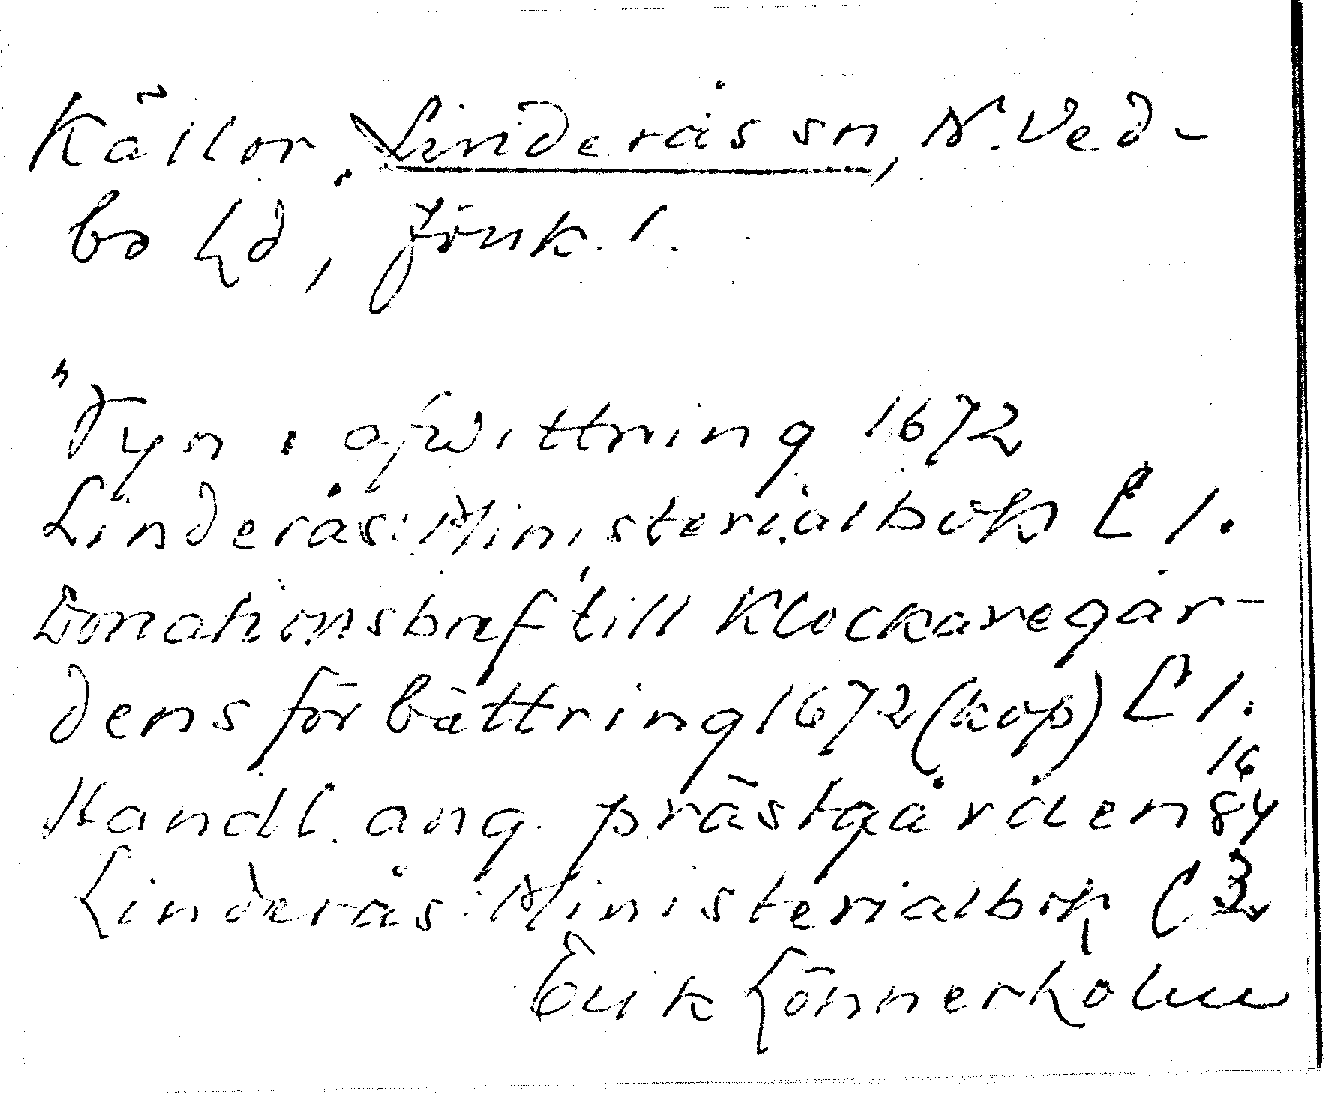 Källor. Linderås sn, N. Ved-
bo hd, Jönk. l.
"Tyn i afwittring 1672
Linderås: Ministerialbok C 1.
Donationsbref till Klockaregår-
dens förbättring 1672 (kop) C 1.
Handl. ang. prästgården 1684
Linderås: Ministerialbok C
Erik Lönnerholm